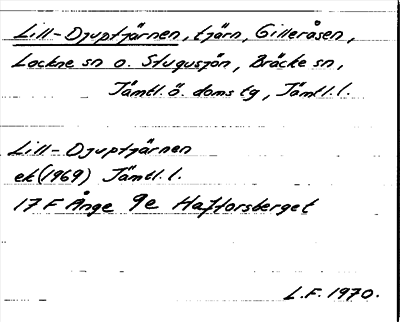 Lill-Djuptjärnen, tjärn, Gilleråsen,
Lockne sn o. Stugusjön, Bräcke sn,
Jämtl. ö. doms tg, Jämtl. l.
Lill-Djuptjärnen
ek (1969) Jämtl. l.
17 F Ånge 9e Haftorsberget
L.F. 1970.